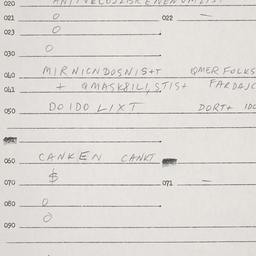 020
021 0 022 —
023 0
030 0
040 MIRNICNDOSNIST QMERFOLKS
041 + QMASKPILISTIST FARDAJC
050 DOIDO LIXT DORT+ IDO
060 CANKEN CANKT
070 $ 071 —
080 0
090 0